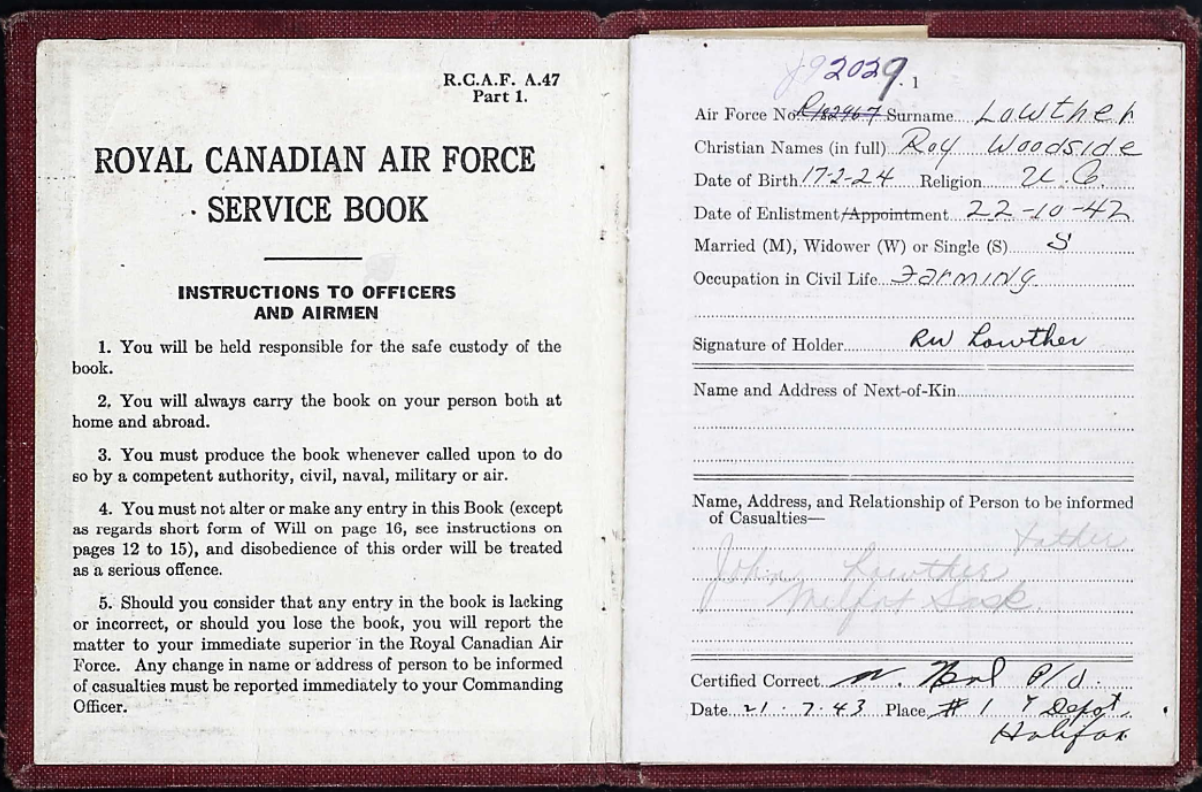 R.C.A.F. A.47
Part 1.
ROYAL CANADIAN AIR FORCE
SERVICE BOOK
INSTRUCTIONS TO OFFICERS
AND AIRMEN
1. You will be held responsible for the safe custody of the
book.
2. You will always carry the book on your person both at
home and abroad.
3. You must produce the book whenever called upon to do
so by a competent authority, civil, naval, military or air.
4. You must not alter or make any entry in this Book (except
as regards short form of Will on page 16, see instructions on
pages 12 to 15), and disobedience of this order will be treated
as a serious offence.
5. Should you consider that any entry in the book is lacking
or incorrect, or should you lose the book, you will report the
matter to your immediate superior in the Royal Canadian Air
Force. Any change in name or address of person to be informed
of casualties must be reported immediately to your Commanding
Officer.
J92029. 1
Air Force No. R182967 Surname Lowther
Christian Names (in full) Roy Woodside
Date of Birth 17-2-24 Religion U.C.
Date of Enlistment/Appointment 22-10-42
Married (M), Widower (W) or Single (S) S
Occupation in Civil Life Farming
Signature of Holder RW Lowther
Name and Address of Next-of-Kin
Name, Address, and Relationship of Person to be informed
of Casualties—
Father
John Lowther
Melfort Sask.
Certified Correct P/O.
Date 21.7.43 Place #1 Y Depot
Halifax